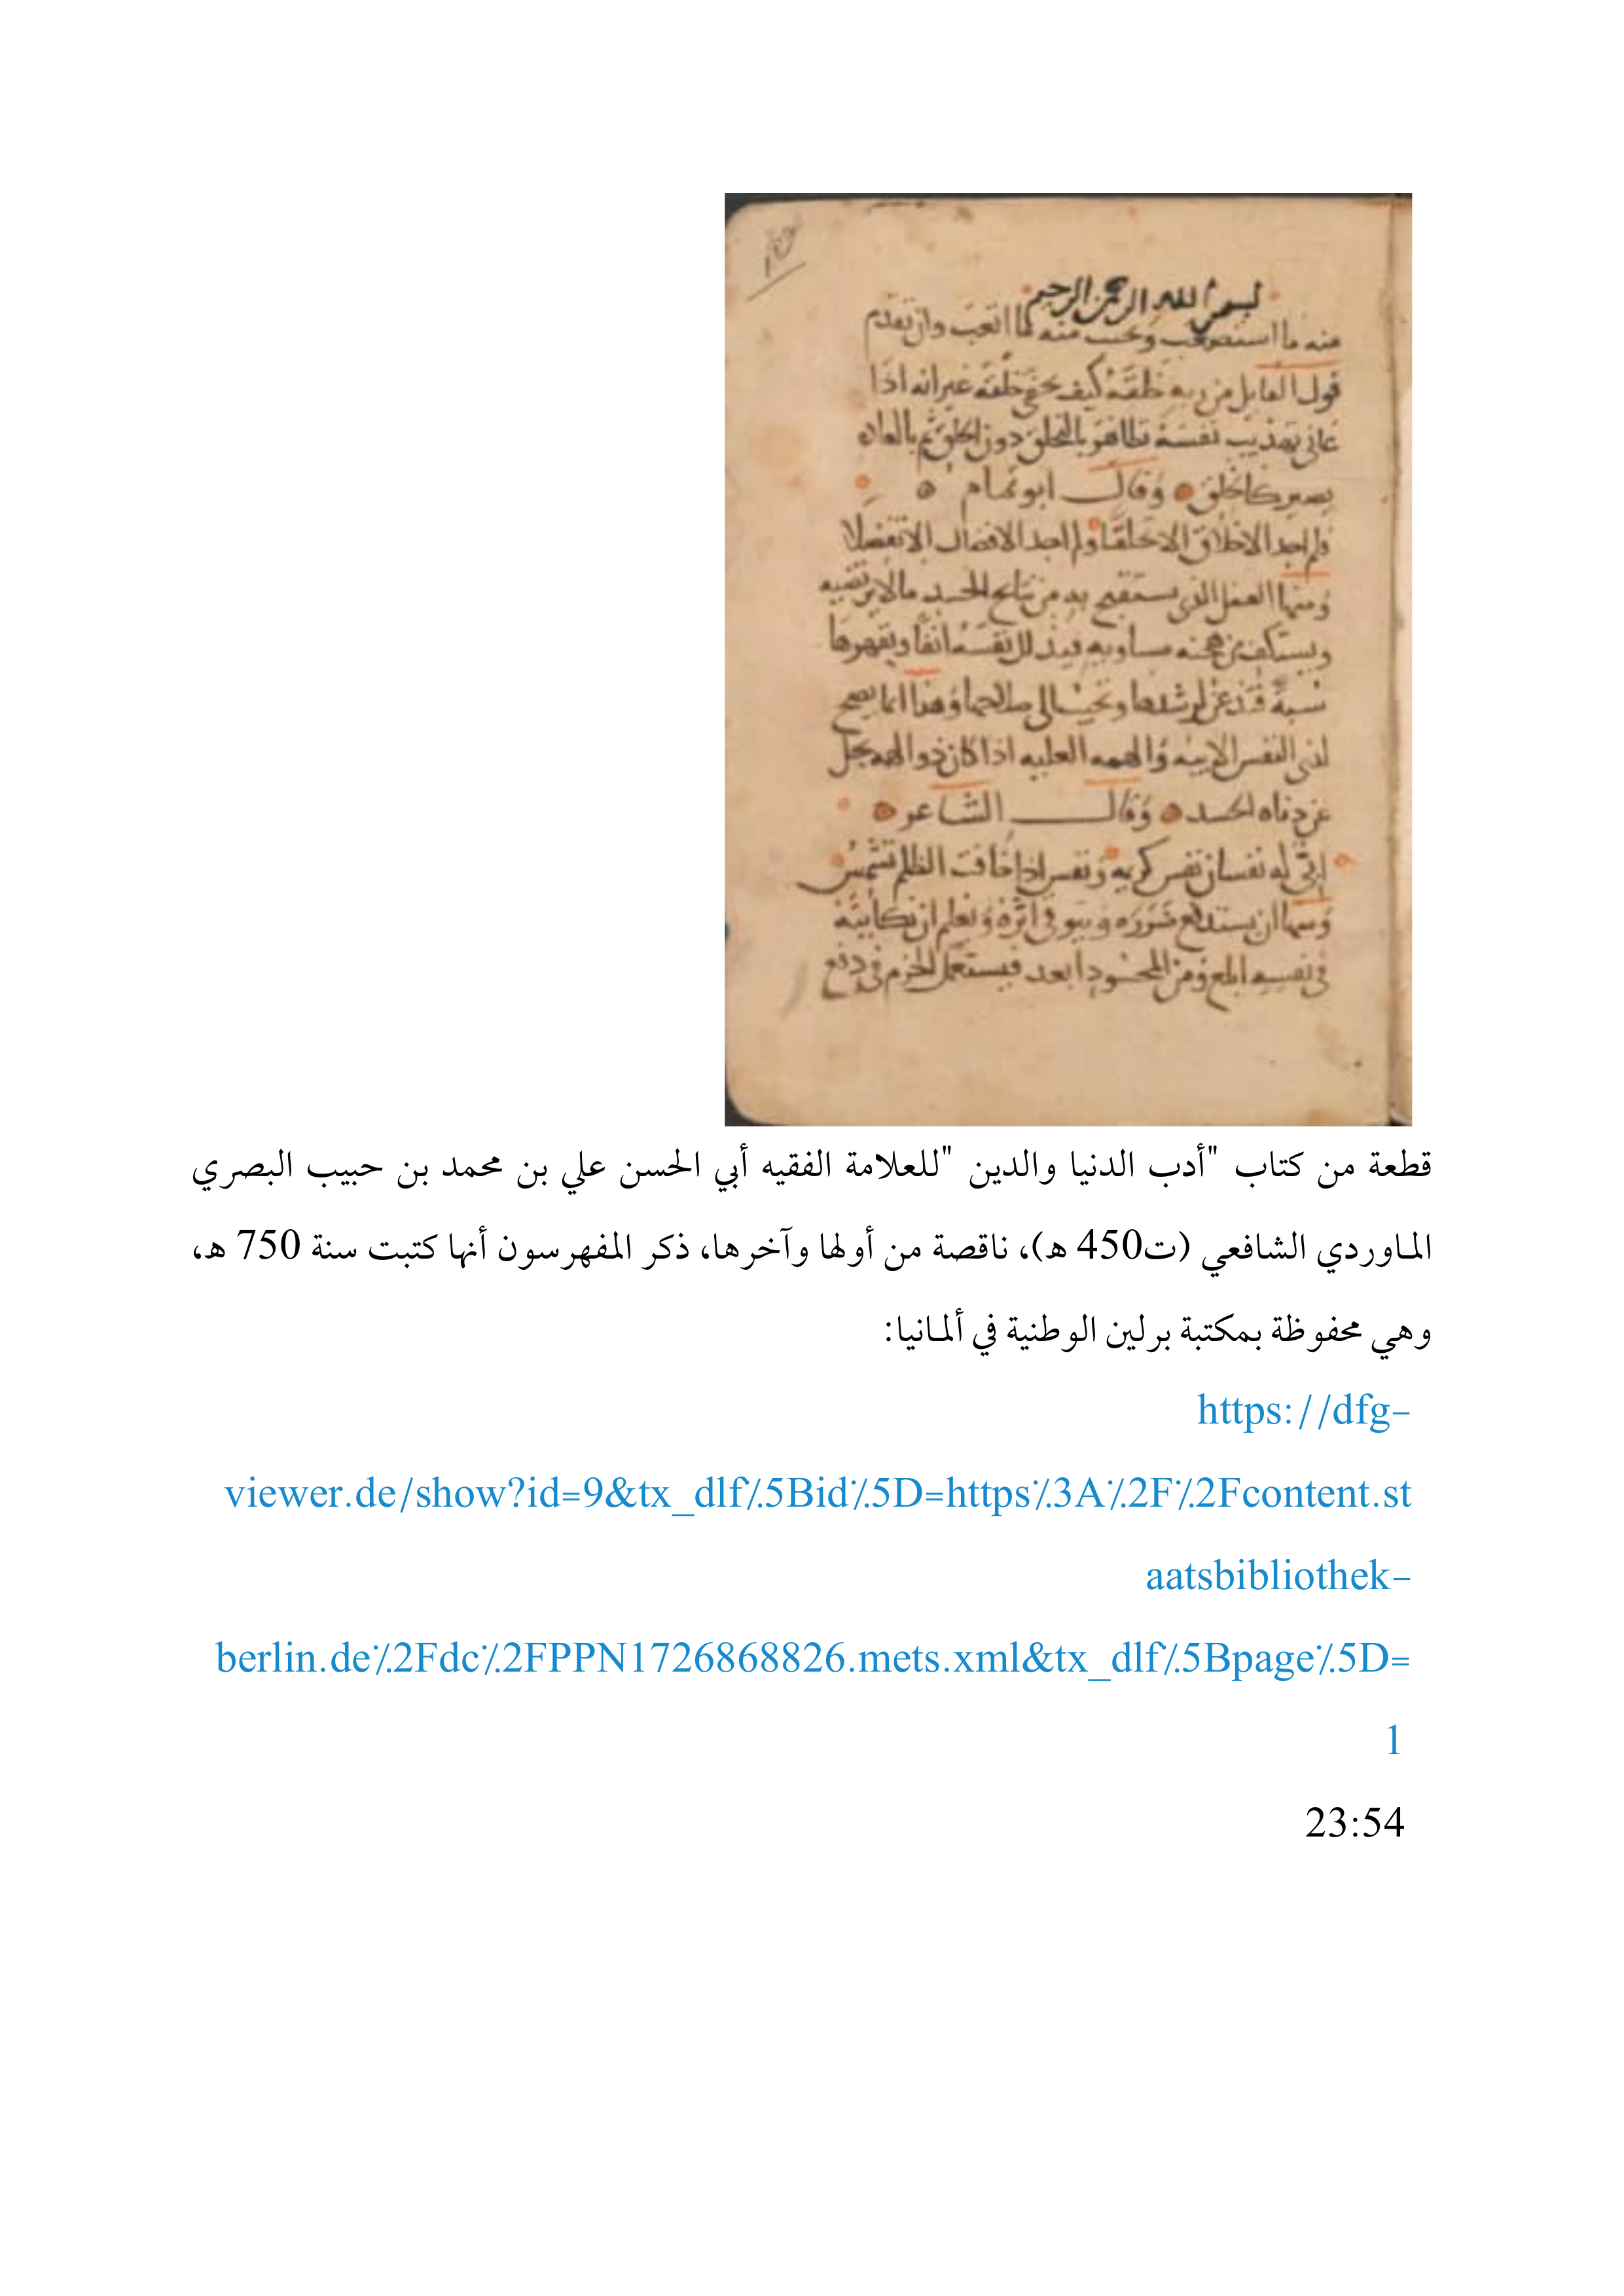 بسم الله الرحمن الرحيم
منه ما استصعب وحبب منه ما اتعب وان تقدم
قول القايل من ربه خلقه كيف يخفي خلقه غير انه اذا
عاني تهذيب نفسه تظاهر بالتخلق دون الخلق ثم بالعاده
يصير كالخلق وقال ابو تمام
فلم اجد الاخلاق الا تخلقا ولم اجد الافضال الا تفضلا
ومنها العقل الذي يستقبح به من نتايج الحسد مالا يرتضيه
ويستنكف من هجنه مساويه فيذلل نفسه انفا ويقهرها
فتذعن لرشدها وتجيب الي صلاحها وهذا انما يصح
لذي النفس الابيه والهمه العليه اذا كان ذو الهمه يجل
عن دناه الحسد وقال الشاعر
ابي له نفسان نفس كريمه ونفس اذا خافت الظلم تشمس
ومنها ان يستدفع ضرره ويتوقي اثره ويعلم ان نكايته
في نفسه ابلغ ومن المحسود ابعد فيستعمل الحزم في دفع
قطعة من كتاب "أدب الدنيا والدين "للعلامة الفقيه أبي الحسن علي بن محمد بن حبيب البصري
الماوردي الشافعي (ت450 هـ)، ناقصة من أولها وآخرها، ذكر المفهرسون أنها كتبت سنة 750 هـ،
وهي محفوظة بمكتبة برلين الوطنية في ألمانيا:
https://dfg-
viewer.de/show?id=9&tx_dlf%5Bid%5D=https%3A%2F%2Fcontent.st
aatsbibliothek-
berlin.de%2Fdc%2FPPN1726868826.mets.xml&tx_dlf%5Bpage%5D=
1
23:54